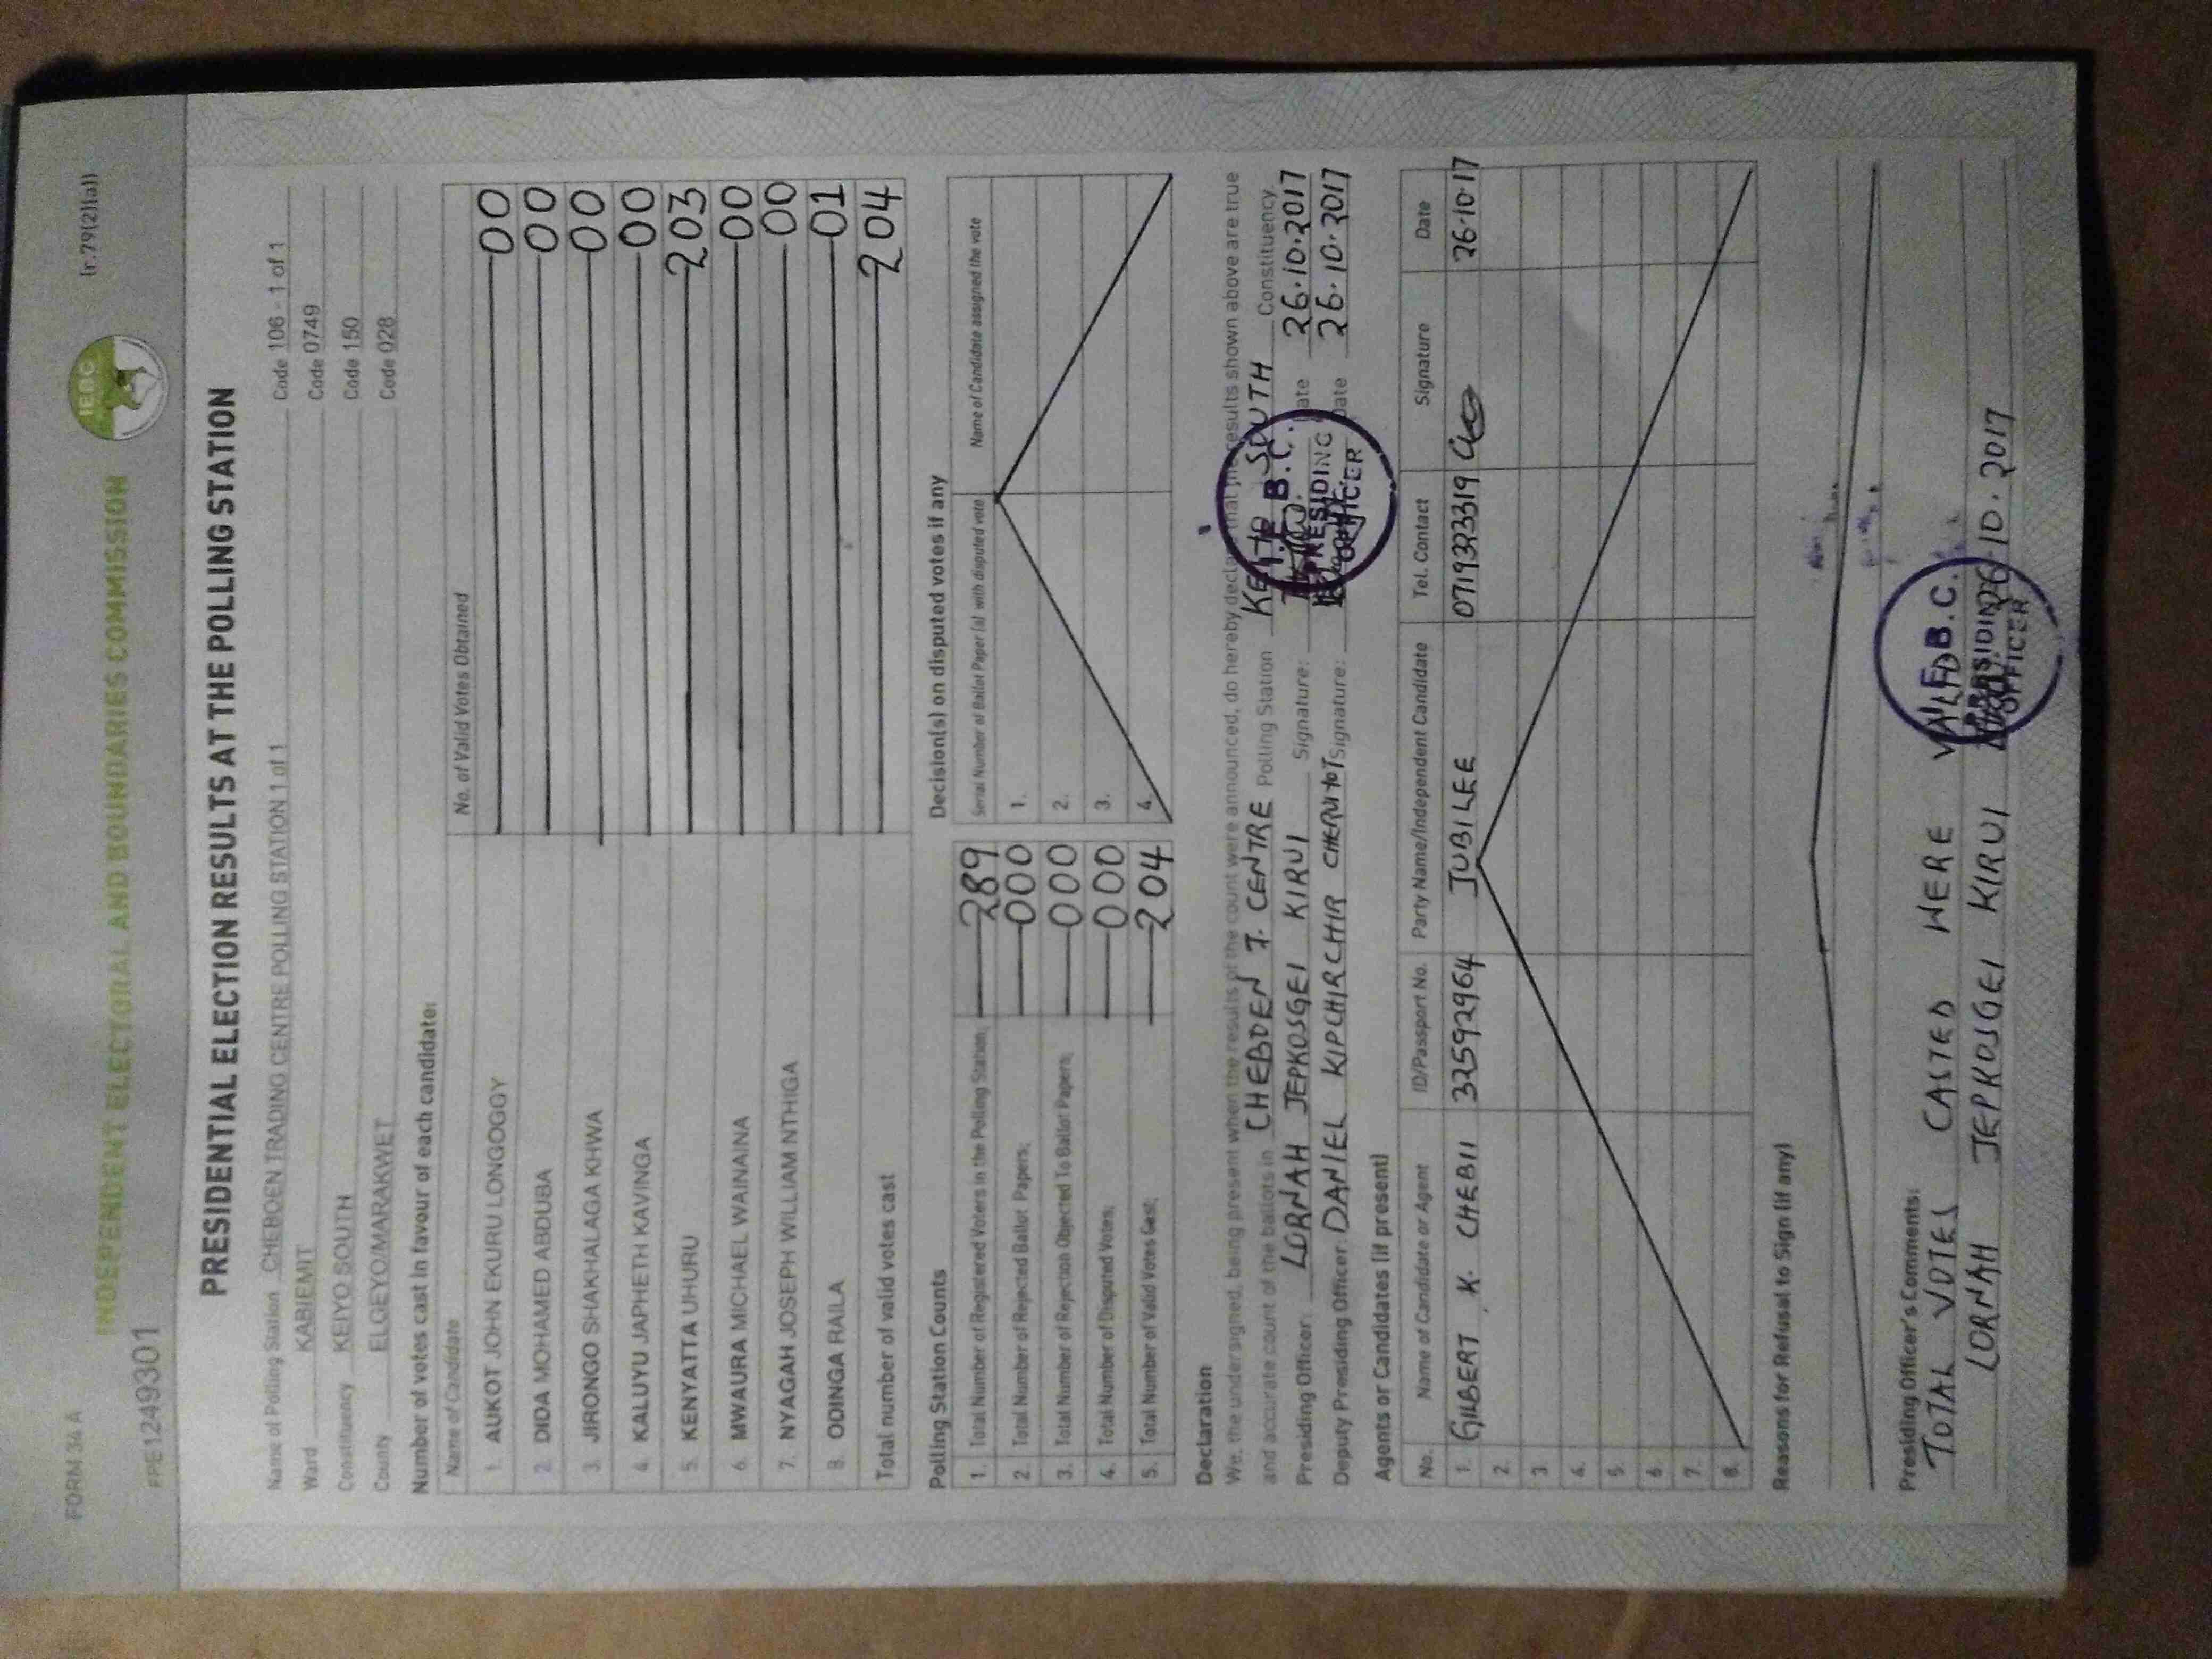 FORM 34 A
(r.79(2)(a))
IEBC
INDEPENDENT ELECTORAL AND BOUNDARIES COMMISSION
PPE1249301
PRESIDENTIAL ELECTION RESULTS AT THE POLLING STATION
Name of Polling Station CHEBOEN TRADING CENTRE POLLING STATION 1 of 1 Code 106 - 1 of 1
Ward KABIEMIT Code 0749
Constituency KEIYO SOUTH Code 150
County ELGEYO/MARAKWET Code 028
Number of votes cast in favour of each candidate:
Name of Candidate No. of Valid Votes Obtained
1. AUKOT JOHN EKURU LONGOGGY 00
2. DIDA MOHAMED ABDUBA 00
3. JIRONGO SHAKHALAGA KHWA 00
4. KALUYU JAPHETH KAVINGA 00
5. KENYATTA UHURU 203
6. MWAURA MICHAEL WAINAINA 00
7. NYAGAH JOSEPH WILLIAM NTHIGA 00
8. ODINGA RAILA 01
Total number of valid votes cast 204
Polling Station Counts
1. Total Number of Registered Voters in the Polling Station; 289
2. Total Number of Rejected Ballot Papers; 000
3. Total Number of Rejection Objected To Ballot Papers; 000
4. Total Number of Disputed Votes; 000
5. Total Number of Valid Votes Cast; 204
Decision(s) on disputed votes if any
Serial Number of Ballot Paper (s) with disputed vote Name of Candidate assigned the vote
1.
2.
3.
4.
Declaration
We, the undersigned, being present when the results of the count were announced, do hereby declare that the results shown above are true
and accurate count of the ballots in CHEBOEN T. CENTRE Polling Station KEIYO SOUTH Constituency.
Presiding Officer: LORNAH JEPKOSGEI KIRUI Signature: Date 26.10.2017
Deputy Presiding Officer: DANIEL KIPCHIRCHIR CHERUIYOT Signature: Date 26.10.2017
I.E.B.C.
PRESIDING
OFFICER
Agents or Candidates (if present)
No. Name of Candidate or Agent ID/Passport No. Party Name/Independent Candidate Tel. Contact Signature Date
1. GILBERT K. CHEBII 32592964 JUBILEE 0719323319 26.10.17
2.
3.
4.
5.
6.
7.
8.
Reasons for Refusal to Sign (if any)
Presiding Officer's Comments:
TOTAL VOTES CASTED WERE VALID
LORNAH JEPKOSGEI KIRUI 26.10.2017
I.E.B.C.
PRESIDING
OFFICER